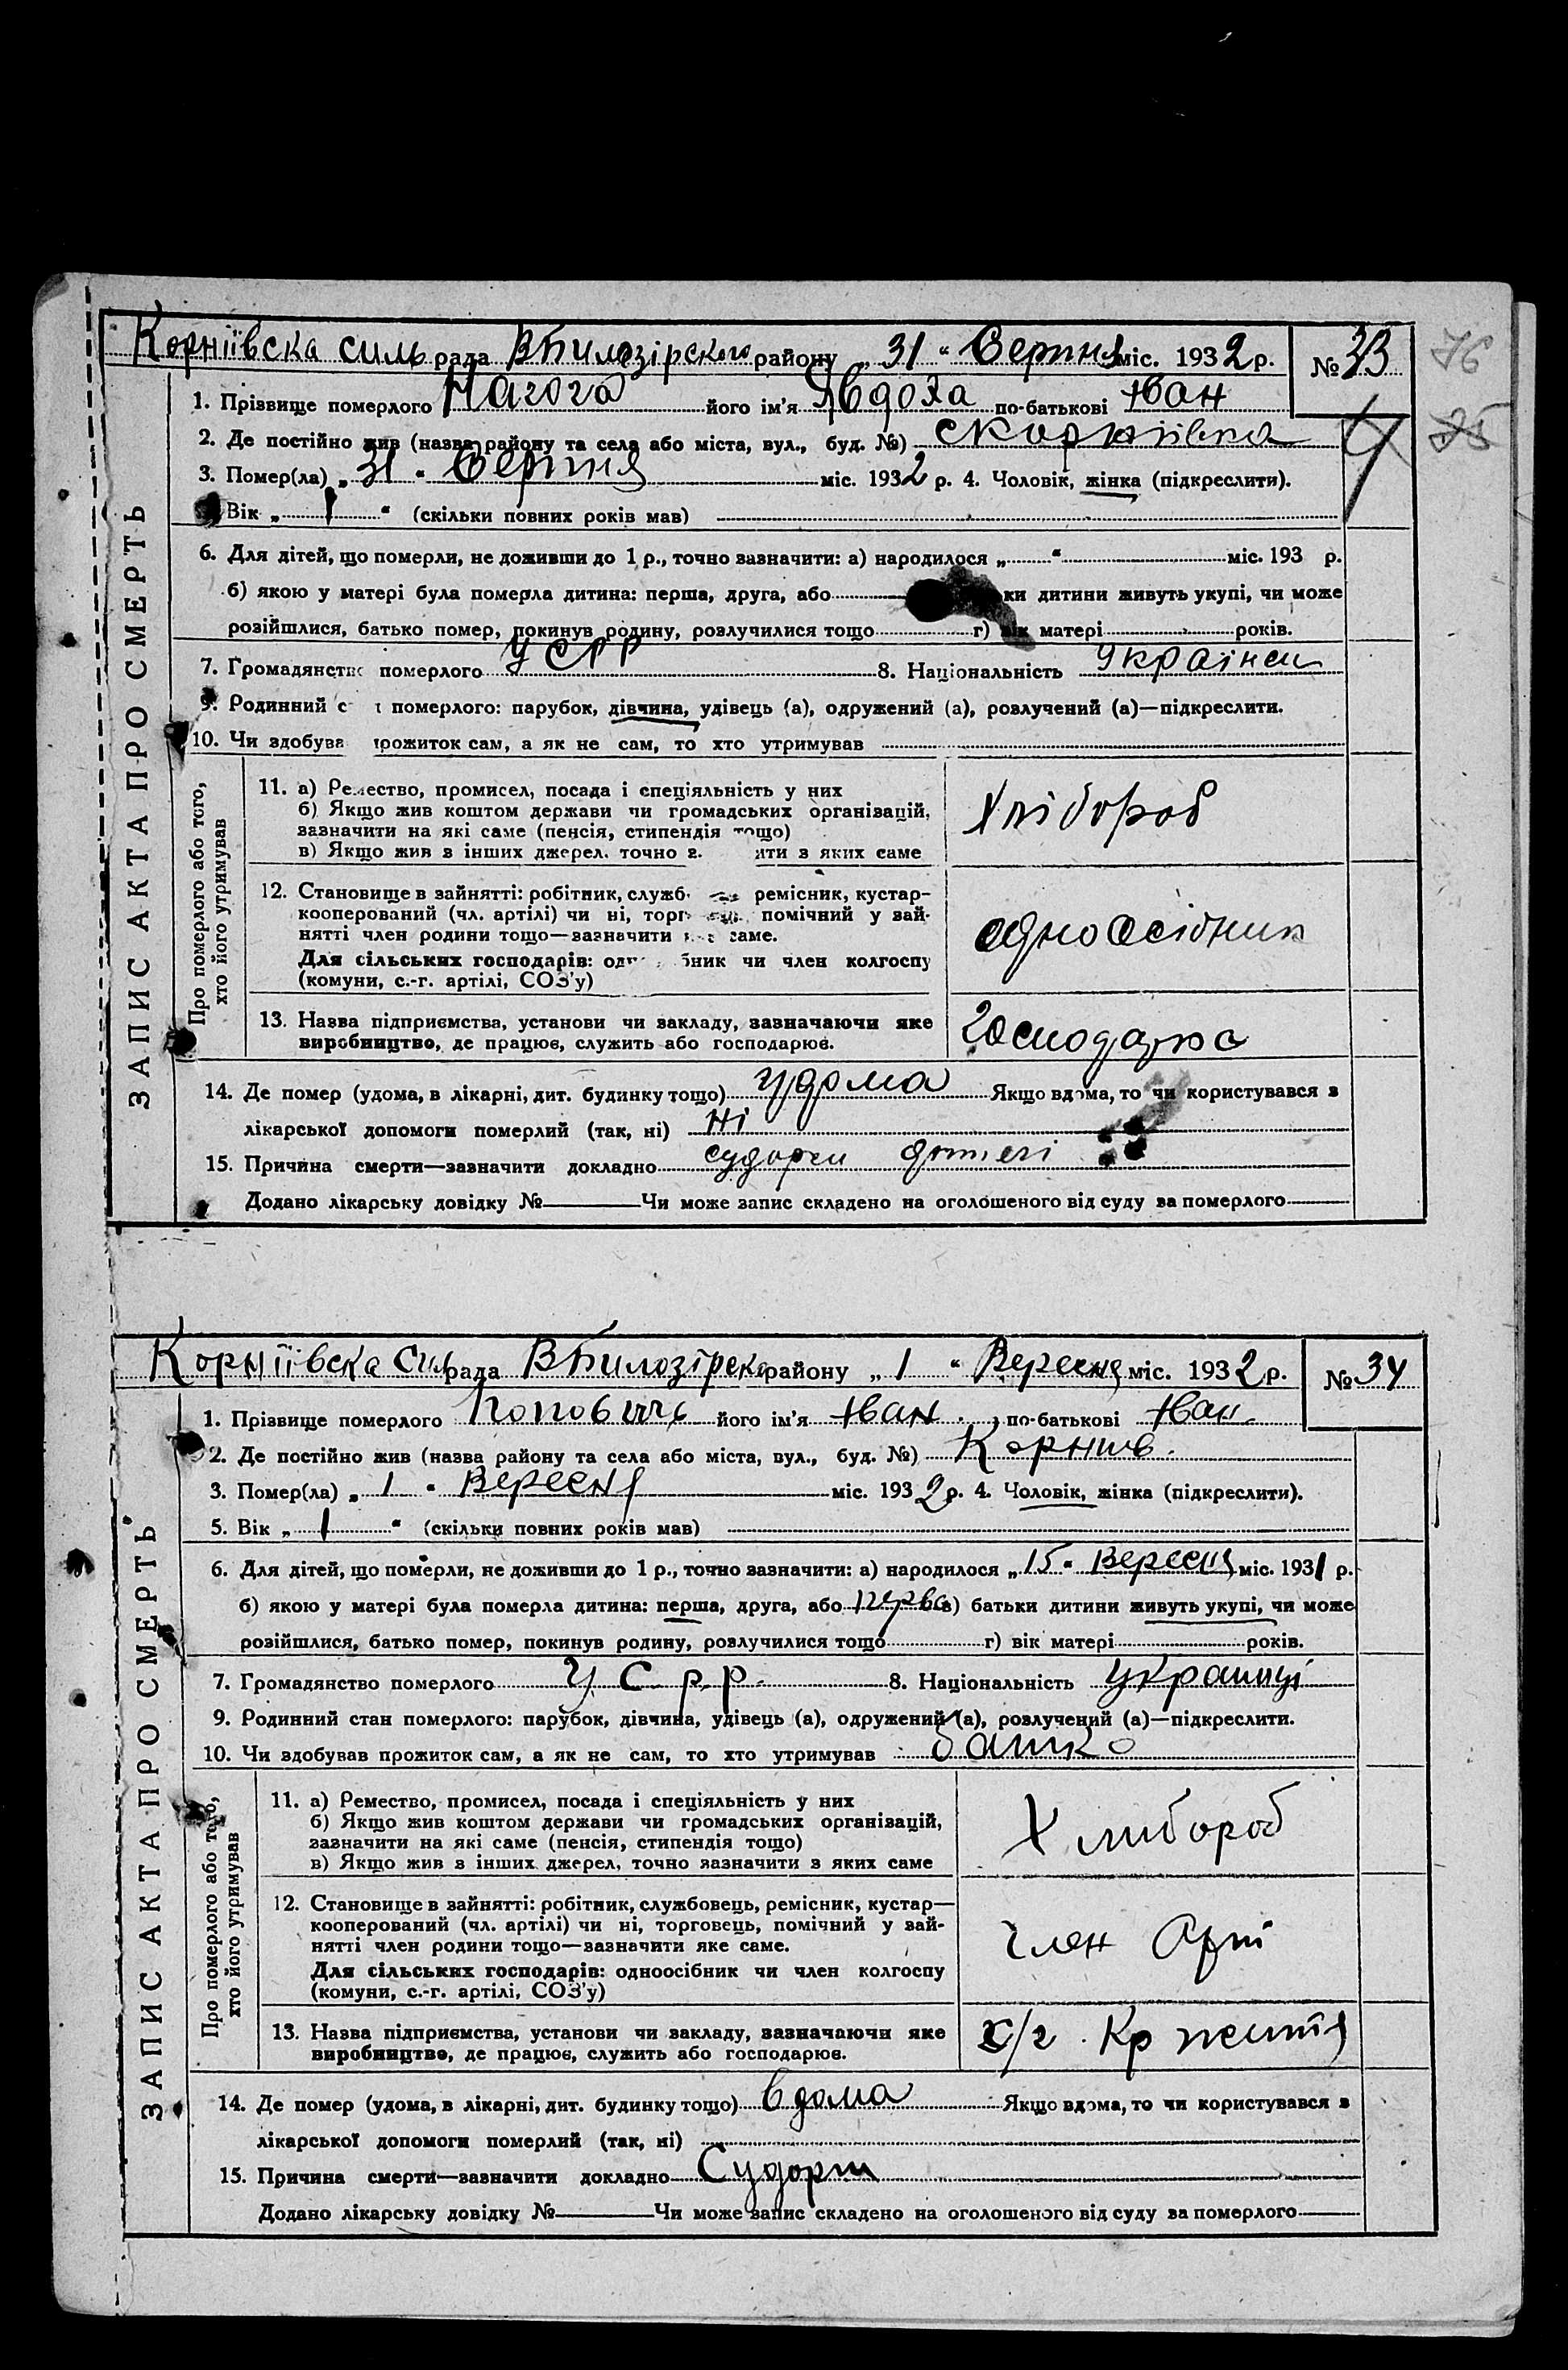 76
75
Корніївска силь рада ВБилозірского району „ 31 “ Серпня міс. 1932 р. № 33
1. Прізвище померлого Нагога його ім'я Явдоха по-батькові Іван
2. Де постійно жив (назва району та села або міста, вул., буд. №) с Корніївка
3. Помер(ла) „ 31 “ Серпня міс. 1932 р. 4. Чоловік, жінка (підкреслити).
Вік „ 1 “ (скільки повних років мав)
6. Для дітей, що померли, не доживши до 1 р., точно зазначити: а) народилося „ “ міс. 193 р.
б) якою у матері була померла дитина: перша, друга, або ки дитини живуть укупі, чи може
розійшлися, батько помер, покинув родину, розлучилися тощо г) вік матері років.
7. Громадянство померлого УСРР 8. Національність Українси
9. Родинний с померлого: парубок, дівчина, удівець (а), одружений (а), розлучений (а)—підкреслити.
10. Чи здобува прожиток сам, а як не сам, то хто утримував
ЗАПИС АКТА ПРО СМЕРТЬ
Про померлого або того,
хто його утримував
11. а) Ремество, промисел, посада і спеціяльність у них
б) Якщо жив коштом держави чи громадських організацій,
зазначити на які саме (пенсія, стипендія тощо)
в) Якщо жив з інших джерел, точно з ити з яких саме
Хлібороб
12. Становище в зайнятті: робітник, службо ремісник, кустар-
кооперований (чл. артілі) чи ні, торг помічний у зай-
нятті член родини тощо—зазначити яке саме.
Для сільських господарів: од бник чи член колгоспу
(комуни, с.-г. артілі, СОЗ'у)
одноосібник
13. Назва підприємства, установи чи закладу, зазначаючи яке
виробництво, де працює, служить або господарює.
Господарка
14. Де помер (удома, в лікарні, дит. будинку тощо) удома Якщо вдома, то чи користувався з
лікарської допомоги померлий (так, ні) Ні
15. Причина смерти—зазначити докладно судорги
Додано лікарську довідку № Чи може запис складено на оголошеного від суду за померлого
Корніївска Силь рада ВБилозірско району „ 1 “ Вересня міс. 1932 р. № 34
1. Прізвище померлого Поповичь його ім'я Іван по-батькові Іван
2. Де постійно жив (назва району та села або міста, вул., буд. №)
3. Помер(ла) „ 1 “ Вересня міс. 1932 р. 4. Чоловік, жінка (підкреслити).
5. Вік „ 1 “ (скільки повних років мав)
6. Для дітей, що померли, не доживши до 1 р., точно зазначити: а) народилося „ 15 “ Вересня міс. 1931 р.
б) якою у матері була померла дитина: перша, друга, або перва в) батьки дитини живуть укупі, чи може
розійшлися, батько помер, покинув родину, розлучилися тощо г) вік матері років.
7. Громадянство померлого УСРР 8. Національність українці
9. Родинний стан померлого: парубок, дівчина, удівець (а), одружений (а), розлучений (а)—підкреслити.
10. Чи здобував прожиток сам, а як не сам, то хто утримував батко
ЗАПИС АКТА ПРО СМЕРТЬ
Про померлого або того,
хто його утримував
11. а) Ремество, промисел, посада і спеціяльність у них
б) Якщо жив коштом держави чи громадських організацій,
зазначити на які саме (пенсія, стипендія тощо)
в) Якщо жив з інших джерел, точно зазначити з яких саме
Хлибороб
12. Становище в зайнятті: робітник, службовець, ремісник, кустар—
кооперований (чл. артілі) чи ні, торговець, помічний у зай-
нятті член родини тощо—зазначити яке саме.
Для сільських господарів: одноосібник чи член колгоспу
(комуни, с.-г. артілі, СОЗ'у)
член Арті
13. Назва підприємства, установи чи закладу, зазначаючи яке
виробництво, де працює, служить або господарює.
с/г Кр життя
14. Де помер (удома, в лікарні, дит. будинку тощо) вдома Якщо вдома, то чи користувався з
лікарської допомоги померлий (так, ні)
15. Причина смерти—зазначити докладно Судорги
Додано лікарську довідку № Чи може запис складено на оголошеного від суду за померлого